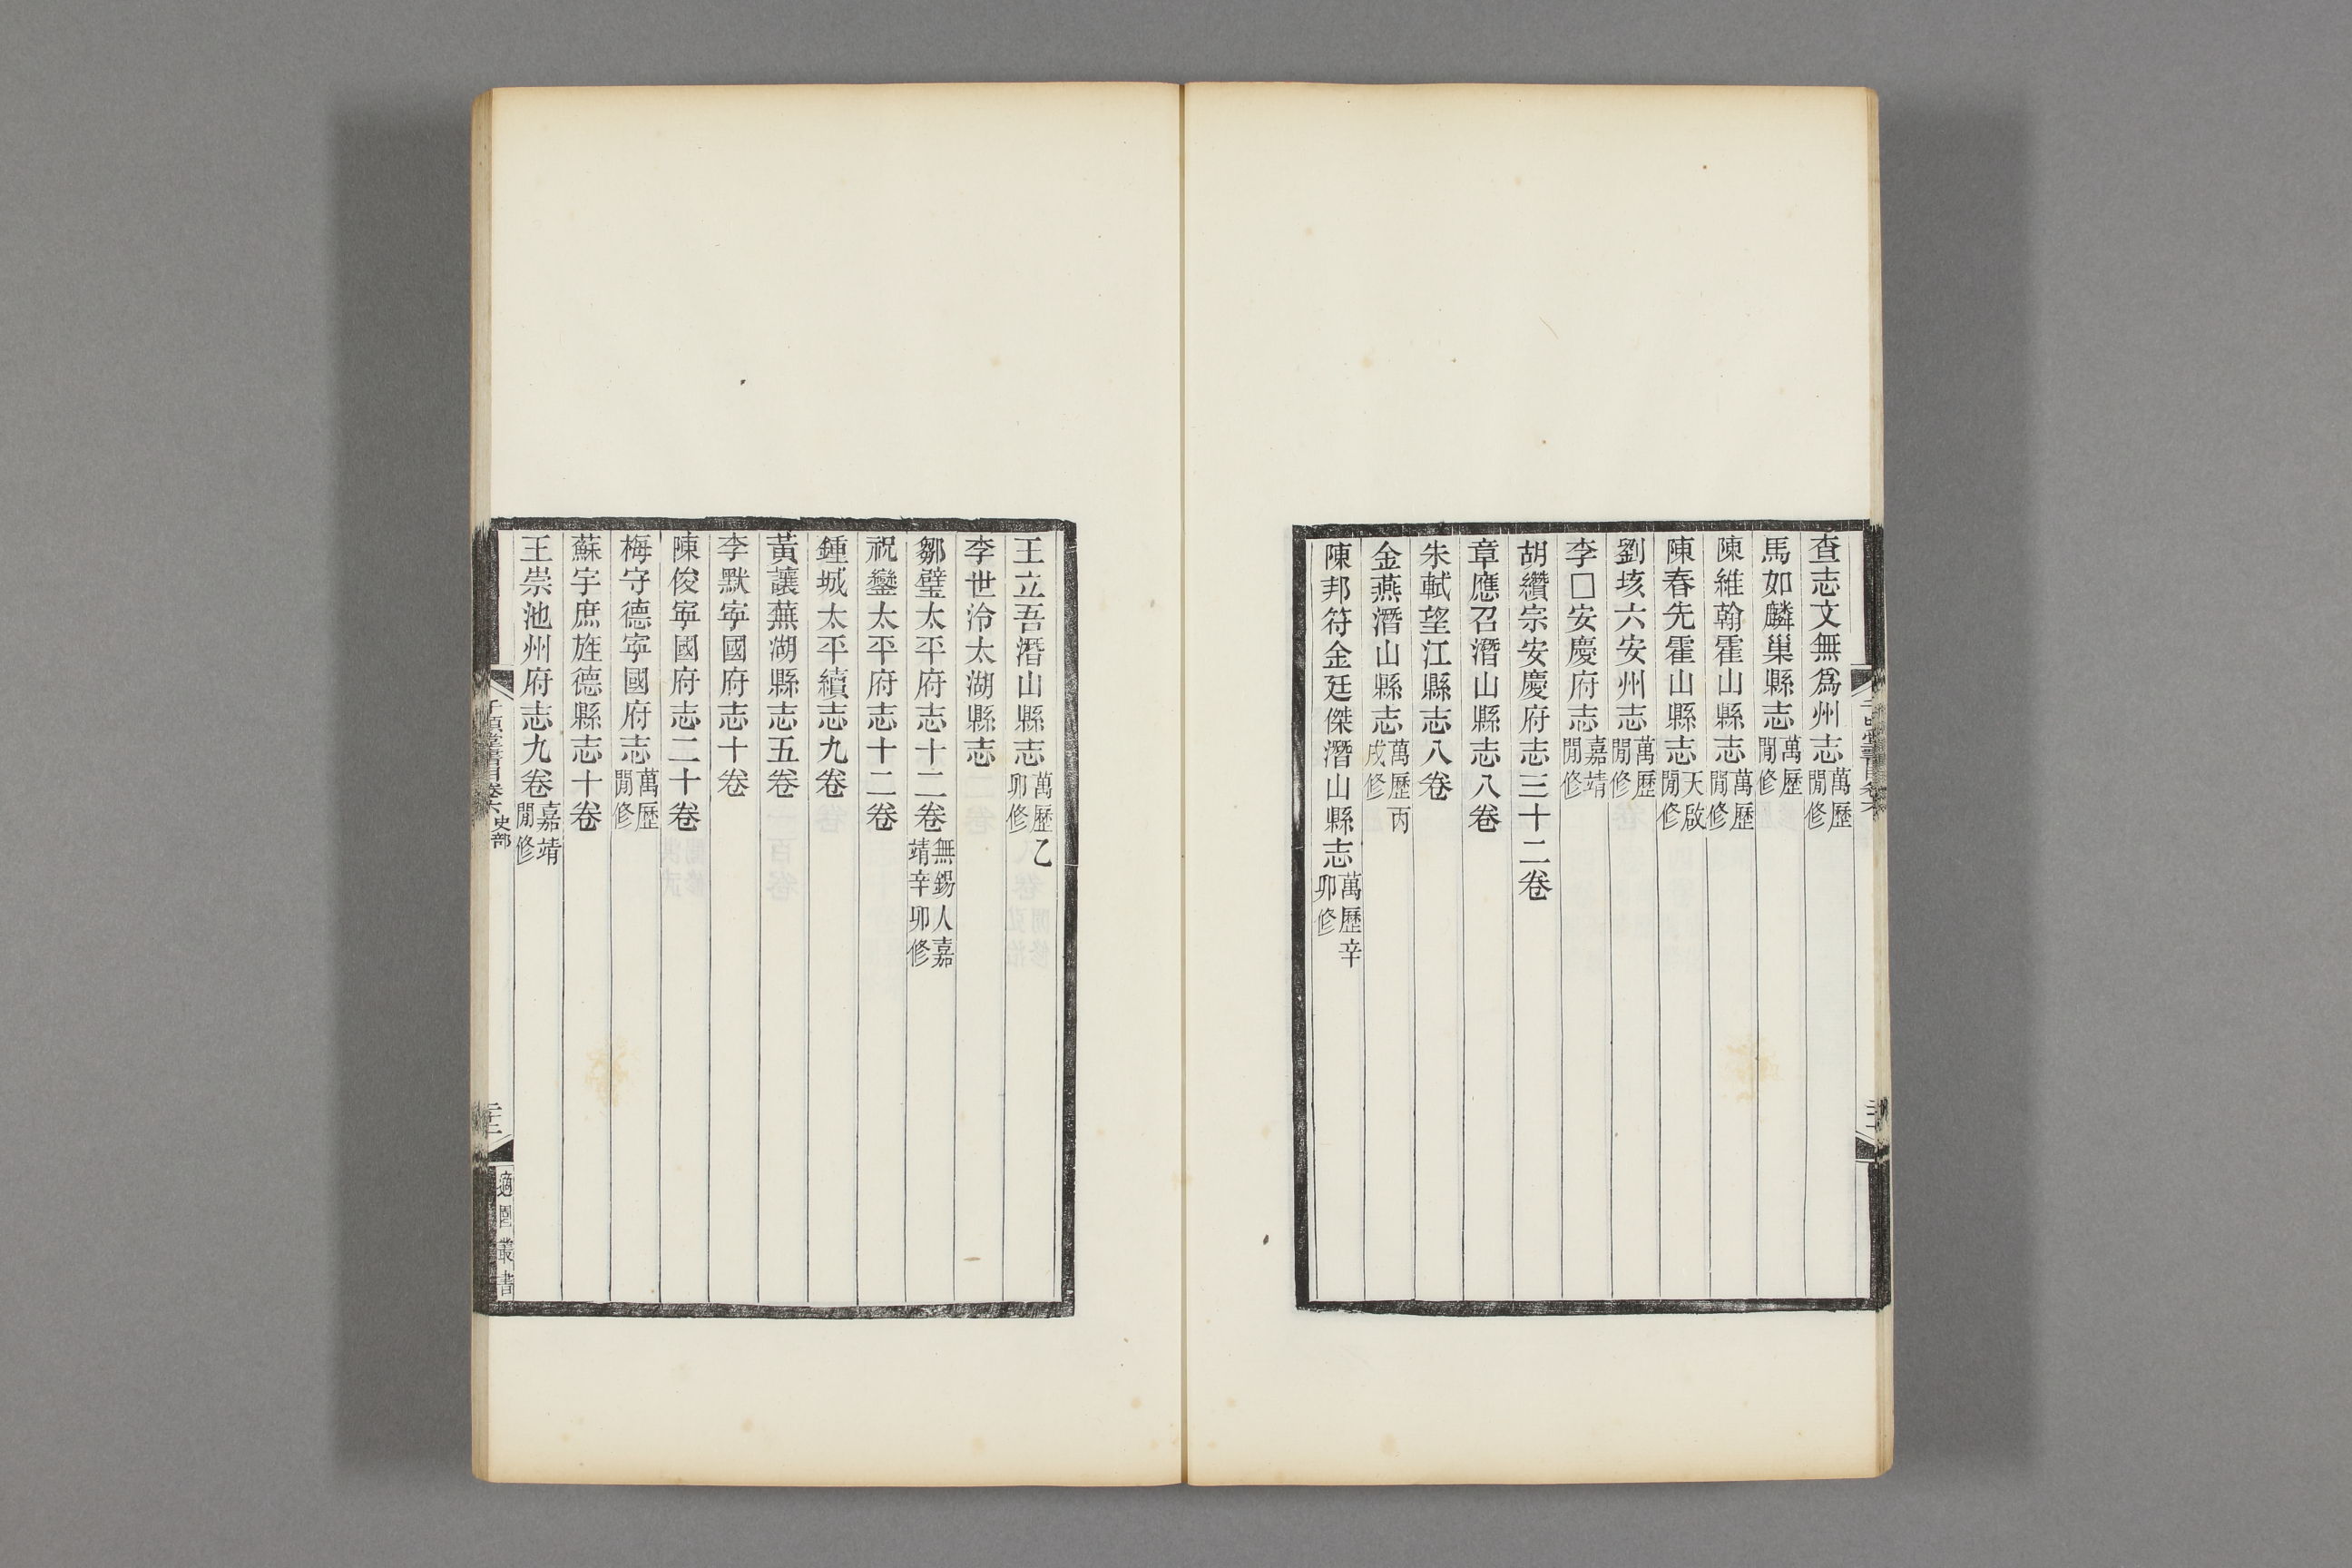 查志文無爲州志萬歷閒修
馬如麟巢縣志萬歷閒修
陳維翰霍山縣志萬歷閒修
陳春先霍山縣志天啟閒修
劉垓六安州志萬歷閒修
李□安慶府志嘉靖閒修
胡纘宗安慶府志三十二卷
章應召潛山縣志八卷
朱軾望江縣志八卷
金燕潛山縣志萬歷丙戌修
陳邦符金廷傑潛山縣志萬歷辛卯修
王立吾潛山縣志萬歷乙卯修
李世泠太湖縣志
鄒璧太平府志十二卷無錫人嘉靖辛卯修
祝鑾太平府志十二卷
鍾城太平續志九卷
黃讓蕪湖縣志五卷
李默寧國府志十卷
陳俊寧國府志二十卷
梅守德寧國府志萬歷閒修
蘇宇庶旌德縣志十卷
王崇池州府志九卷嘉靖閒修
千頃堂書目卷六史部
適園叢書